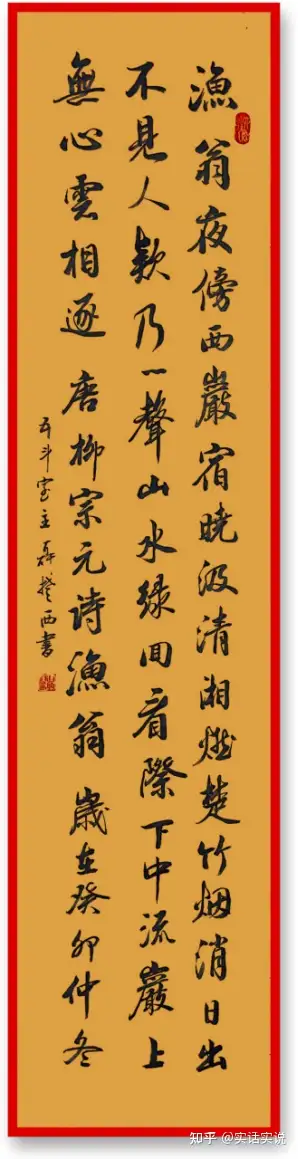 漁翁夜傍西巖宿曉汲清湘燃楚竹烟消日出
不見人欸乃一聲山水绿回看際下中流巖上
無心雲相逐 唐柳宗元诗漁翁 歲在癸卯仲冬
五斗室主 西書
知乎 @实话实说